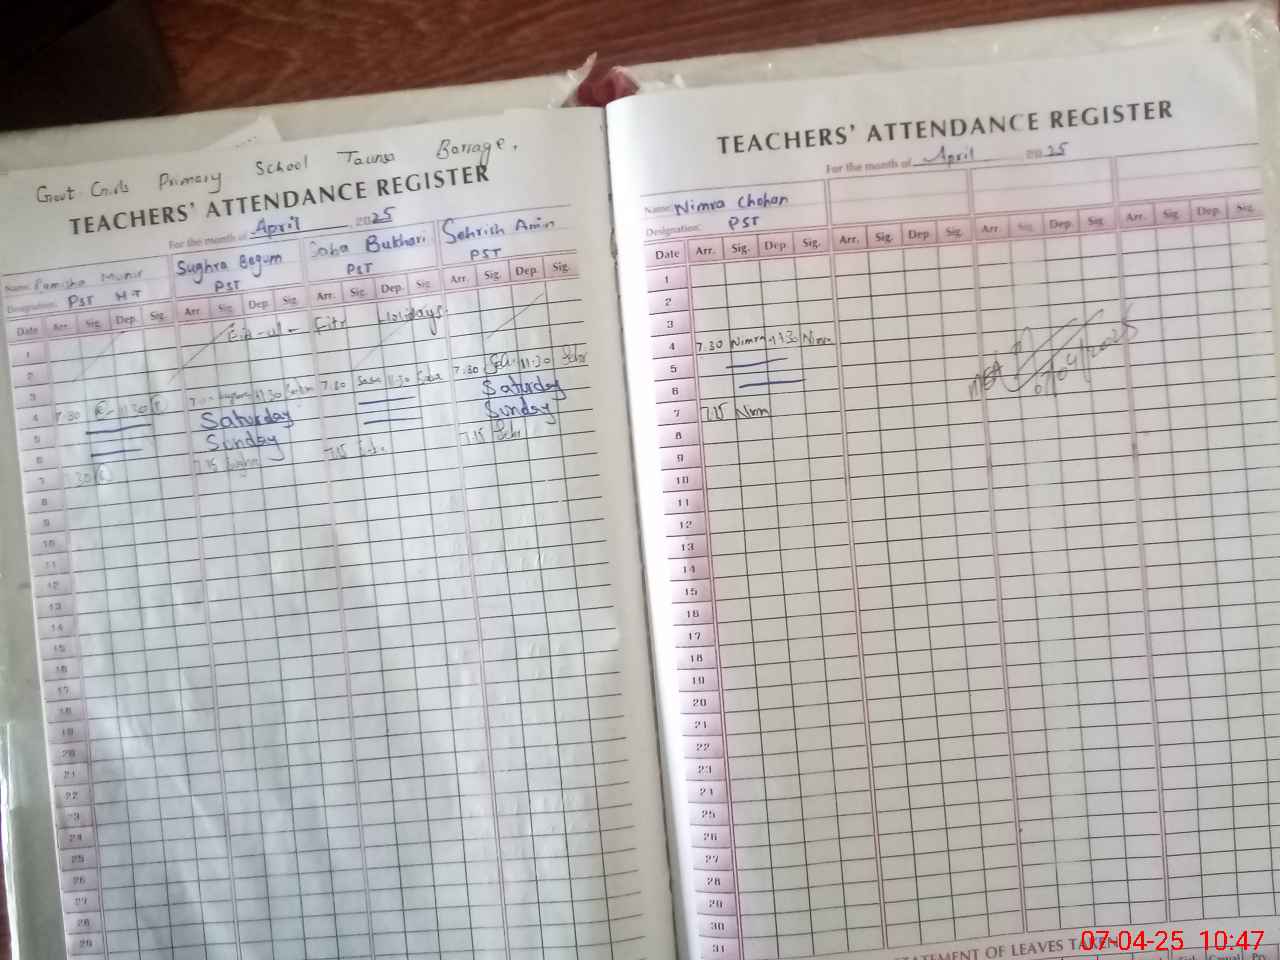 Govt. Girls Primary School Taunsa Barrage.
TEACHERS' ATTENDANCE REGISTER
For the month of April 2025
Name: Munir Sughra Begum Saba Bukhari Sehrish Amin
Designation: PST H-T PST PST PST
Date Arr. Sig. Dep. Sig. Arr. Sig. Dep. Sig. Arr. Sig. Dep. Sig. Arr. Sig. Dep. Sig.
1 Eid-ul-Fitr Holidays
2
3
4 7.30 11.30 11.30 7.30 Saba 11.30 Saba 7.30 11.30
5 Saturday Saturday
6 Sunday Sunday
7 30 7.15 7.15 7.15
8
9
10
11
12
13
14
15
16
17
18
19
20
21
22
23
24
25
26
27
28
29
TEACHERS' ATTENDANCE REGISTER
For the month of April 2025
Name: Nimra Chohan
Designation: PST
Date Arr. Sig. Dep. Sig. Arr. Sig. Dep. Sig. Arr. Sig. Dep. Sig. Arr. Sig. Dep. Sig.
1
2
3
4 7.30 Nimra 11.30 Nimra
5
6
7 7.15 Nimra
8
9
10
11
12
13
14
15
16
17
18
19
20
21
22
23
24
25
26
27
28
29
30
31
STATEMENT OF LEAVES TAKEN
07-04-25 10:47